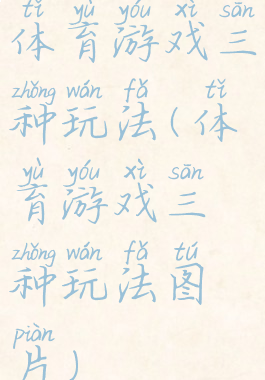 tǐ yù yóu xì sān
体育游戏三
zhǒng wán fǎ tǐ
种玩法(体
yù yóu xì sān
育游戏三
zhǒng wán fǎ tú
种玩法图
piàn
片)